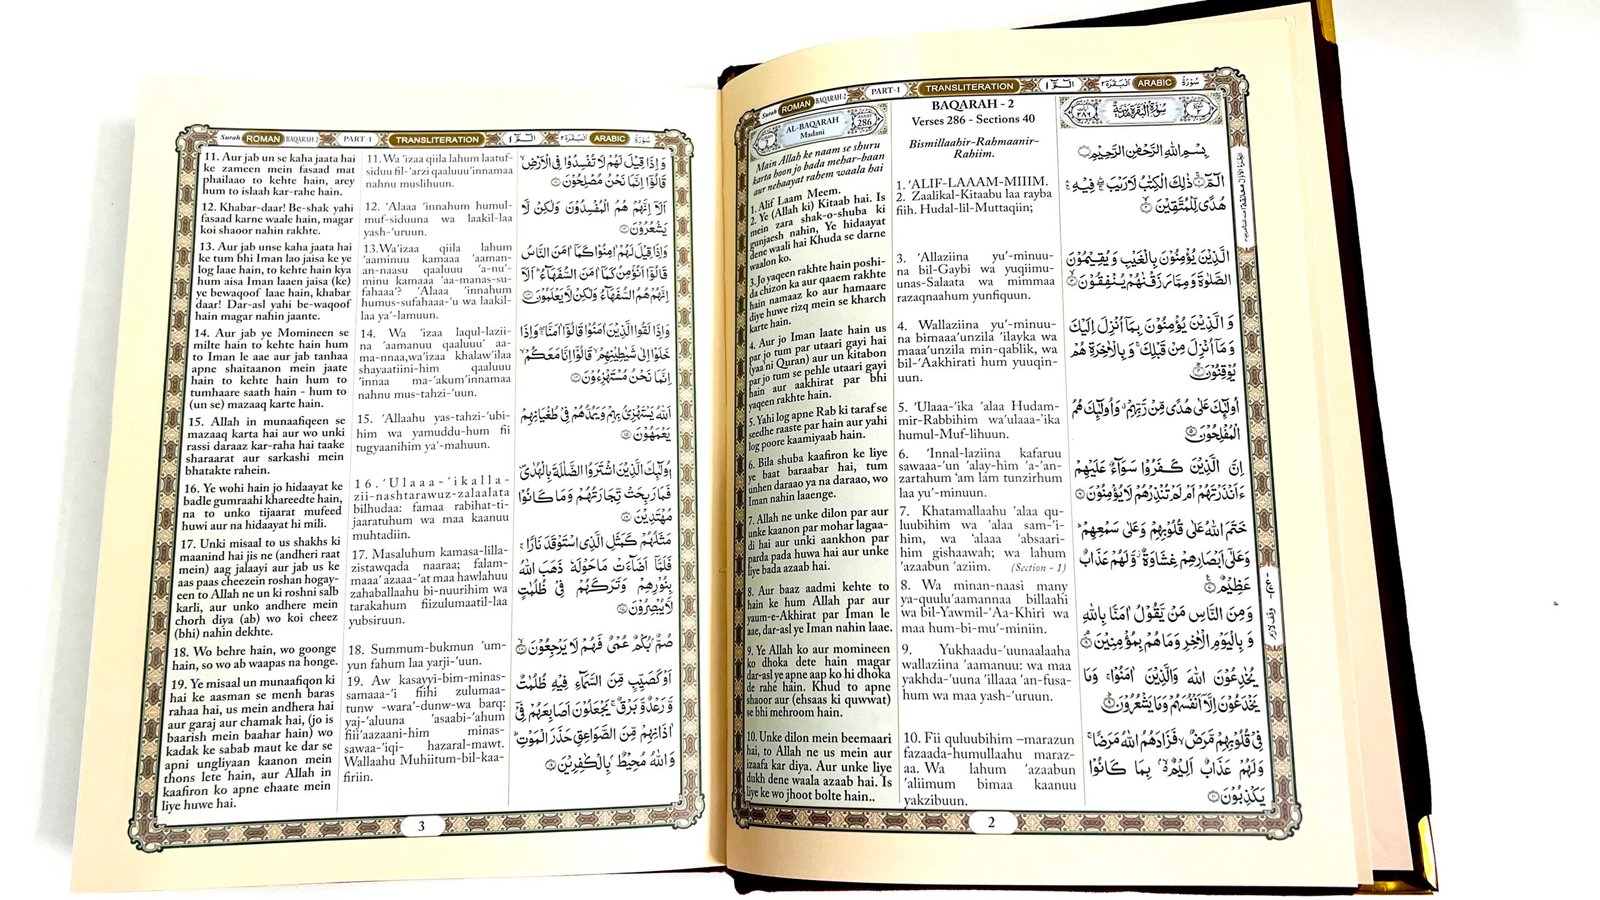 Surah ROMAN BAQARAH-2 PART-1 TRANSLITERATION الٓمّٓ ١ البقرة ٢ ARABIC سُوْرَةُ
AL-BAQARAH
Madani
AYAAT
286
Main Allah ke naam se shuru
karta hoon jo bada mehar-baan
aur nehaayat rahem waala hai
1. Alif Laam Meem.
2. Ye (Allah ki) Kitaab hai. Is
mein zara shak-o-shuba ki
gunjaesh nahin, Ye hidaayat
dene waali hai Khuda se darne
waalon ko.
3. Jo yaqeen rakhte hain poshi-
da chizon ka aur qaaem rakhte
hain namaaz ko aur hamaare
diye huwe rizq mein se kharch
karte hain.
4. Aur jo Iman laate hain us
par jo tum par utaari gayi hai
(yaa'ni Quran) aur un kitabon
par jo tum se pehle utaari gayi
hain aur aakhirat par bhi
yaqeen rakhte hain.
5. Yahi log apne Rab ki taraf se
seedhe raaste par hain aur yahi
log poore kaamiyaab hain.
6. Bila shuba kaafiron ke liye
ye baat baraabar hai, tum
unhen daraao ya na daraao, wo
Iman nahin laaenge.
7. Allah ne unke dilon par aur
unke kaanon par mohar lagaa-
di hai aur unki aankhon par
parda pada huwa hai aur unke
liye bada azaab hai.
8. Aur baaz aadmi kehte to
hain ke hum Allah par aur
yaum-e-Akhirat par Iman le
aae, dar-asl ye Iman nahin laae.
9. Ye Allah ko aur momineen
ko dhoka dete hain magar
dar-asl ye apne aap ko hi dhoka
de rahe hain. Khud to apne
shaoor aur (ehsaas ki quwwat)
se bhi mehroom hain.
10. Unke dilon mein beemaari
hai, to Allah ne us mein aur
izaafa kar diya. Aur unke liye
dukh dene waala azaab hai. Is
liye ke wo jhoot bolte hain..
BAQARAH - 2
Verses 286 - Sections 40
Bismillaahir-Rahmaanir-
Rahiim.
1. 'ALIF-LAAAM-MIIIM.
2. Zaalikal-Kitaabu laa rayba
fiih. Hudal-lil-Muttaqiin;
3. 'Allaziina yu'-minuu-
na bil-Gaybi wa yuqiimu-
unas-Salaata wa mimmaa
razaqnaahum yunfiquun.
4. Wallaziina yu'-minuu-
na bimaaa'unzila 'ilayka wa
maaa'unzila min-qablik, wa
bil-'Aakhirati hum yuuqin-
uun.
5. 'Ulaaa-'ika 'alaa Hudam-
mir-Rabbihim wa'ulaaa-'ika
humul-Muf-lihuun.
6. 'Innal-laziina kafaruu
sawaaa-'un 'alay-him 'a-'an-
zartahum 'am lam tunzirhum
laa yu'-minuun.
7. Khatamallaahu 'alaa qu-
luubihim wa 'alaa sam-'i-
him, wa 'alaaa 'absaari-
him gishaawah; wa lahum
'azaabun 'aziim. (Section - 1)
8. Wa minan-naasi many
ya-quulu'aamannaa billaahi
wa bil-Yawmil-'Aa-Khiri wa
maa hum-bi-mu'-miniin.
9. Yukhaadu-'uunaalaaha
wallaziina 'aamanuu: wa maa
yakhda-'uuna 'illaaa 'an-fusa-
hum wa maa yash-'uruun.
10. Fii quluubihim –marazun
fazaada-humullaahu maraz-
aa. Wa lahum 'azaabun
'aliimum bimaa kaanuu
yakzibuun.
بِسْمِ اللّٰهِ الرَّحْمٰنِ الرَّحِيْمِ
الٓمّٓ ۚ ذٰلِكَ الْكِتٰبُ لَا رَيْبَ ۛ فِيْهِ ۛ
هُدًى لِّلْمُتَّقِيْنَ
الَّذِيْنَ يُؤْمِنُوْنَ بِالْغَيْبِ وَ يُقِيْمُوْنَ
الصَّلٰوةَ وَ مِمَّا رَزَقْنٰهُمْ يُنْفِقُوْنَ
وَ الَّذِيْنَ يُؤْمِنُوْنَ بِمَآ اُنْزِلَ اِلَيْكَ
وَ مَآ اُنْزِلَ مِنْ قَبْلِكَ ۚ وَ بِالْاٰخِرَةِ هُمْ
يُوْقِنُوْنَ
اُولٰٓئِكَ عَلٰى هُدًى مِّنْ رَّبِّهِمْ ۗ وَ اُولٰٓئِكَ هُمُ
الْمُفْلِحُوْنَ
اِنَّ الَّذِيْنَ كَفَرُوْا سَوَآءٌ عَلَيْهِمْ
ءَاَنْذَرْتَهُمْ اَمْ لَمْ تُنْذِرْهُمْ لَا يُؤْمِنُوْنَ
خَتَمَ اللّٰهُ عَلٰى قُلُوْبِهِمْ وَ عَلٰى سَمْعِهِمْ ۗ
وَ عَلٰٓى اَبْصَارِهِمْ غِشَاوَةٌ ۖ وَّ لَهُمْ عَذَابٌ
عَظِيْمٌ
وَ مِنَ النَّاسِ مَنْ يَّقُوْلُ اٰمَنَّا بِاللّٰهِ
وَ بِالْيَوْمِ الْاٰخِرِ وَ مَا هُمْ بِمُؤْمِنِيْنَ
يُخٰدِعُوْنَ اللّٰهَ وَ الَّذِيْنَ اٰمَنُوْا ۚ وَ مَا
يَخْدَعُوْنَ اِلَّآ اَنْفُسَهُمْ وَ مَا يَشْعُرُوْنَ
فِيْ قُلُوْبِهِمْ مَّرَضٌ ۙ فَزَادَهُمُ اللّٰهُ مَرَضًا ۚ
وَ لَهُمْ عَذَابٌ اَلِيْمٌ ۢ ۙ بِمَا كَانُوْا
يَكْذِبُوْنَ
2
Surah ROMAN BAQARAH-2 PART-1 TRANSLITERATION الٓمّٓ ١ البقرة ٢ ARABIC سُوْرَةُ
11. Aur jab un se kaha jaata hai
ke zameen mein fasaad mat
phailaao to kehte hain, arey
hum to islaah kar-rahe hain.
12. Khabar-daar! Be-shak yahi
fasaad karne waale hain, magar
koi shaoor nahin rakhte.
13. Aur jab unse kaha jaata hai
ke tum bhi Iman lao jaisa ke ye
log laae hain, to kehte hain kya
hum aisa Iman laaen jaisa (ke)
ye bewaqoof laae hain, khabar
daar! Dar-asl yahi be-waqoof
hain magar nahin jaante.
14. Aur jab ye Momineen se
milte hain to kehte hain hum
to Iman le aae aur jab tanhaa
apne shaitaanon mein jaate
hain to kehte hain hum to
tumhaare saath hain - hum to
(un se) mazaaq karte hain.
15. Allah in munaafiqeen se
mazaaq karta hai aur wo unki
rassi daraaz kar-raha hai taake
sharaarat aur sarkashi mein
bhatakte rahein.
16. Ye wohi hain jo hidaayat ke
badle gumraahi khareedte hain,
na to unko tijaarat mufeed
huwi aur na hidaayat hi mili.
17. Unki misaal to us shakhs ki
maanind hai jis ne (andheri raat
mein) aag jalaayi aur jab us ke
aas paas cheezein roshan hogay-
een to Allah ne un ki roshni salb
karli, aur unko andhere mein
chorh diya (ab) wo koi cheez
(bhi) nahin dekhte.
18. Wo behre hain, wo goonge
hain, so wo ab waapas na honge.
19. Ye misaal un munaafiqon ki
hai ke aasman se menh baras
rahaa hai, us mein andhera hai
aur garaj aur chamak hai, (jo is
baarish mein baahar hain) wo
kadak ke sabab maut ke dar se
apni ungliyaan kaanon mein
thons lete hain, aur Allah in
kaafiron ko apne ehaate mein
liye huwe hai.
11. Wa 'izaa qiila lahum laatuf-
siduu fil-'arzi qaaluuu'innamaa
nahnu muslihuun.
12. 'Alaaa 'innahum humul-
muf-siduuna wa laakil-laa
yash-'uruun.
13.Wa'izaa qiila lahum
'aaminuu kamaaa 'aaman-
an-naasu qaaluuu 'a-nu'-
minu kamaaa 'aa-manas-su-
fahaaa'? 'Alaaa 'innahum
humus-sufahaaa-'u wa laakil-
laa ya'-lamuun.
14. Wa 'izaaa laqul-lazii-
na 'aamanuu qaaluuu' aa-
ma-nnaa,wa'izaa khalaw'ilaa
shayaatiini-him qaaluuu
'innaa ma-'akum'innamaa
nahnu mus-tahzi-'uun.
15. 'Allaahu yas-tahzi-'ubi-
him wa yamuddu-hum fii
tugyaanihim ya'-mahuun.
16. 'Ulaaa-'ikalla-
zii-nashtarawuz-zalaalata
bilhudaa: famaa rabihat-ti-
jaaratuhum wa maa kaanuu
muhtadiin.
17. Masaluhum kamasa-lilla-
zistawqada naaraa; falam-
maaa' azaaa-'at maa hawlahuu
zahaballaahu bi-nuurihim wa
tarakahum fiizulumaatil-laa
yubsiruun.
18. Summum-bukmun 'um-
yun fahum laa yarji-'uun.
19. Aw kasayyi-bim-minas-
samaaa-'i fiihi zulumaa-
tunw -wara'-dunw-wa barq:
yaj-'aluuna 'asaabi-'ahum
fii'aazaani-him minas-
sawaa-'iqi- hazaral-mawt.
Wallaahu Muhiitum-bil-kaa-
firiin.
وَ اِذَا قِيْلَ لَهُمْ لَا تُفْسِدُوْا فِى الْاَرْضِ ۙ
قَالُوْٓا اِنَّمَا نَحْنُ مُصْلِحُوْنَ
اَلَآ اِنَّهُمْ هُمُ الْمُفْسِدُوْنَ وَ لٰكِنْ لَّا
يَشْعُرُوْنَ
وَ اِذَا قِيْلَ لَهُمْ اٰمِنُوْا كَمَآ اٰمَنَ النَّاسُ
قَالُوْٓا اَنُؤْمِنُ كَمَآ اٰمَنَ السُّفَهَآءُ ۗ اَلَآ
اِنَّهُمْ هُمُ السُّفَهَآءُ وَ لٰكِنْ لَّا يَعْلَمُوْنَ
وَ اِذَا لَقُوا الَّذِيْنَ اٰمَنُوْا قَالُوْٓا اٰمَنَّا ۖ وَ اِذَا
خَلَوْا اِلٰى شَيٰطِيْنِهِمْ ۙ قَالُوْٓا اِنَّا مَعَكُمْ ۙ
اِنَّمَا نَحْنُ مُسْتَهْزِءُوْنَ
اَللّٰهُ يَسْتَهْزِئُ بِهِمْ وَ يَمُدُّهُمْ فِيْ طُغْيَانِهِمْ
يَعْمَهُوْنَ
اُولٰٓئِكَ الَّذِيْنَ اشْتَرَوُا الضَّلٰلَةَ بِالْهُدٰى ۪
فَمَا رَبِحَتْ تِّجَارَتُهُمْ وَ مَا كَانُوْا
مُهْتَدِيْنَ
مَثَلُهُمْ كَمَثَلِ الَّذِى اسْتَوْقَدَ نَارًا ۚ
فَلَمَّآ اَضَآءَتْ مَا حَوْلَهٗ ذَهَبَ اللّٰهُ
بِنُوْرِهِمْ وَ تَرَكَهُمْ فِيْ ظُلُمٰتٍ
لَّا يُبْصِرُوْنَ
صُمٌّ ۢ بُكْمٌ عُمْيٌ فَهُمْ لَا يَرْجِعُوْنَ
اَوْ كَصَيِّبٍ مِّنَ السَّمَآءِ فِيْهِ ظُلُمٰتٌ
وَّ رَعْدٌ وَّ بَرْقٌ ۚ يَجْعَلُوْنَ اَصَابِعَهُمْ فِيْٓ
اٰذَانِهِمْ مِّنَ الصَّوَاعِقِ حَذَرَ الْمَوْتِ ۗ
وَ اللّٰهُ مُحِيْطٌ ۢ بِالْكٰفِرِيْنَ
3